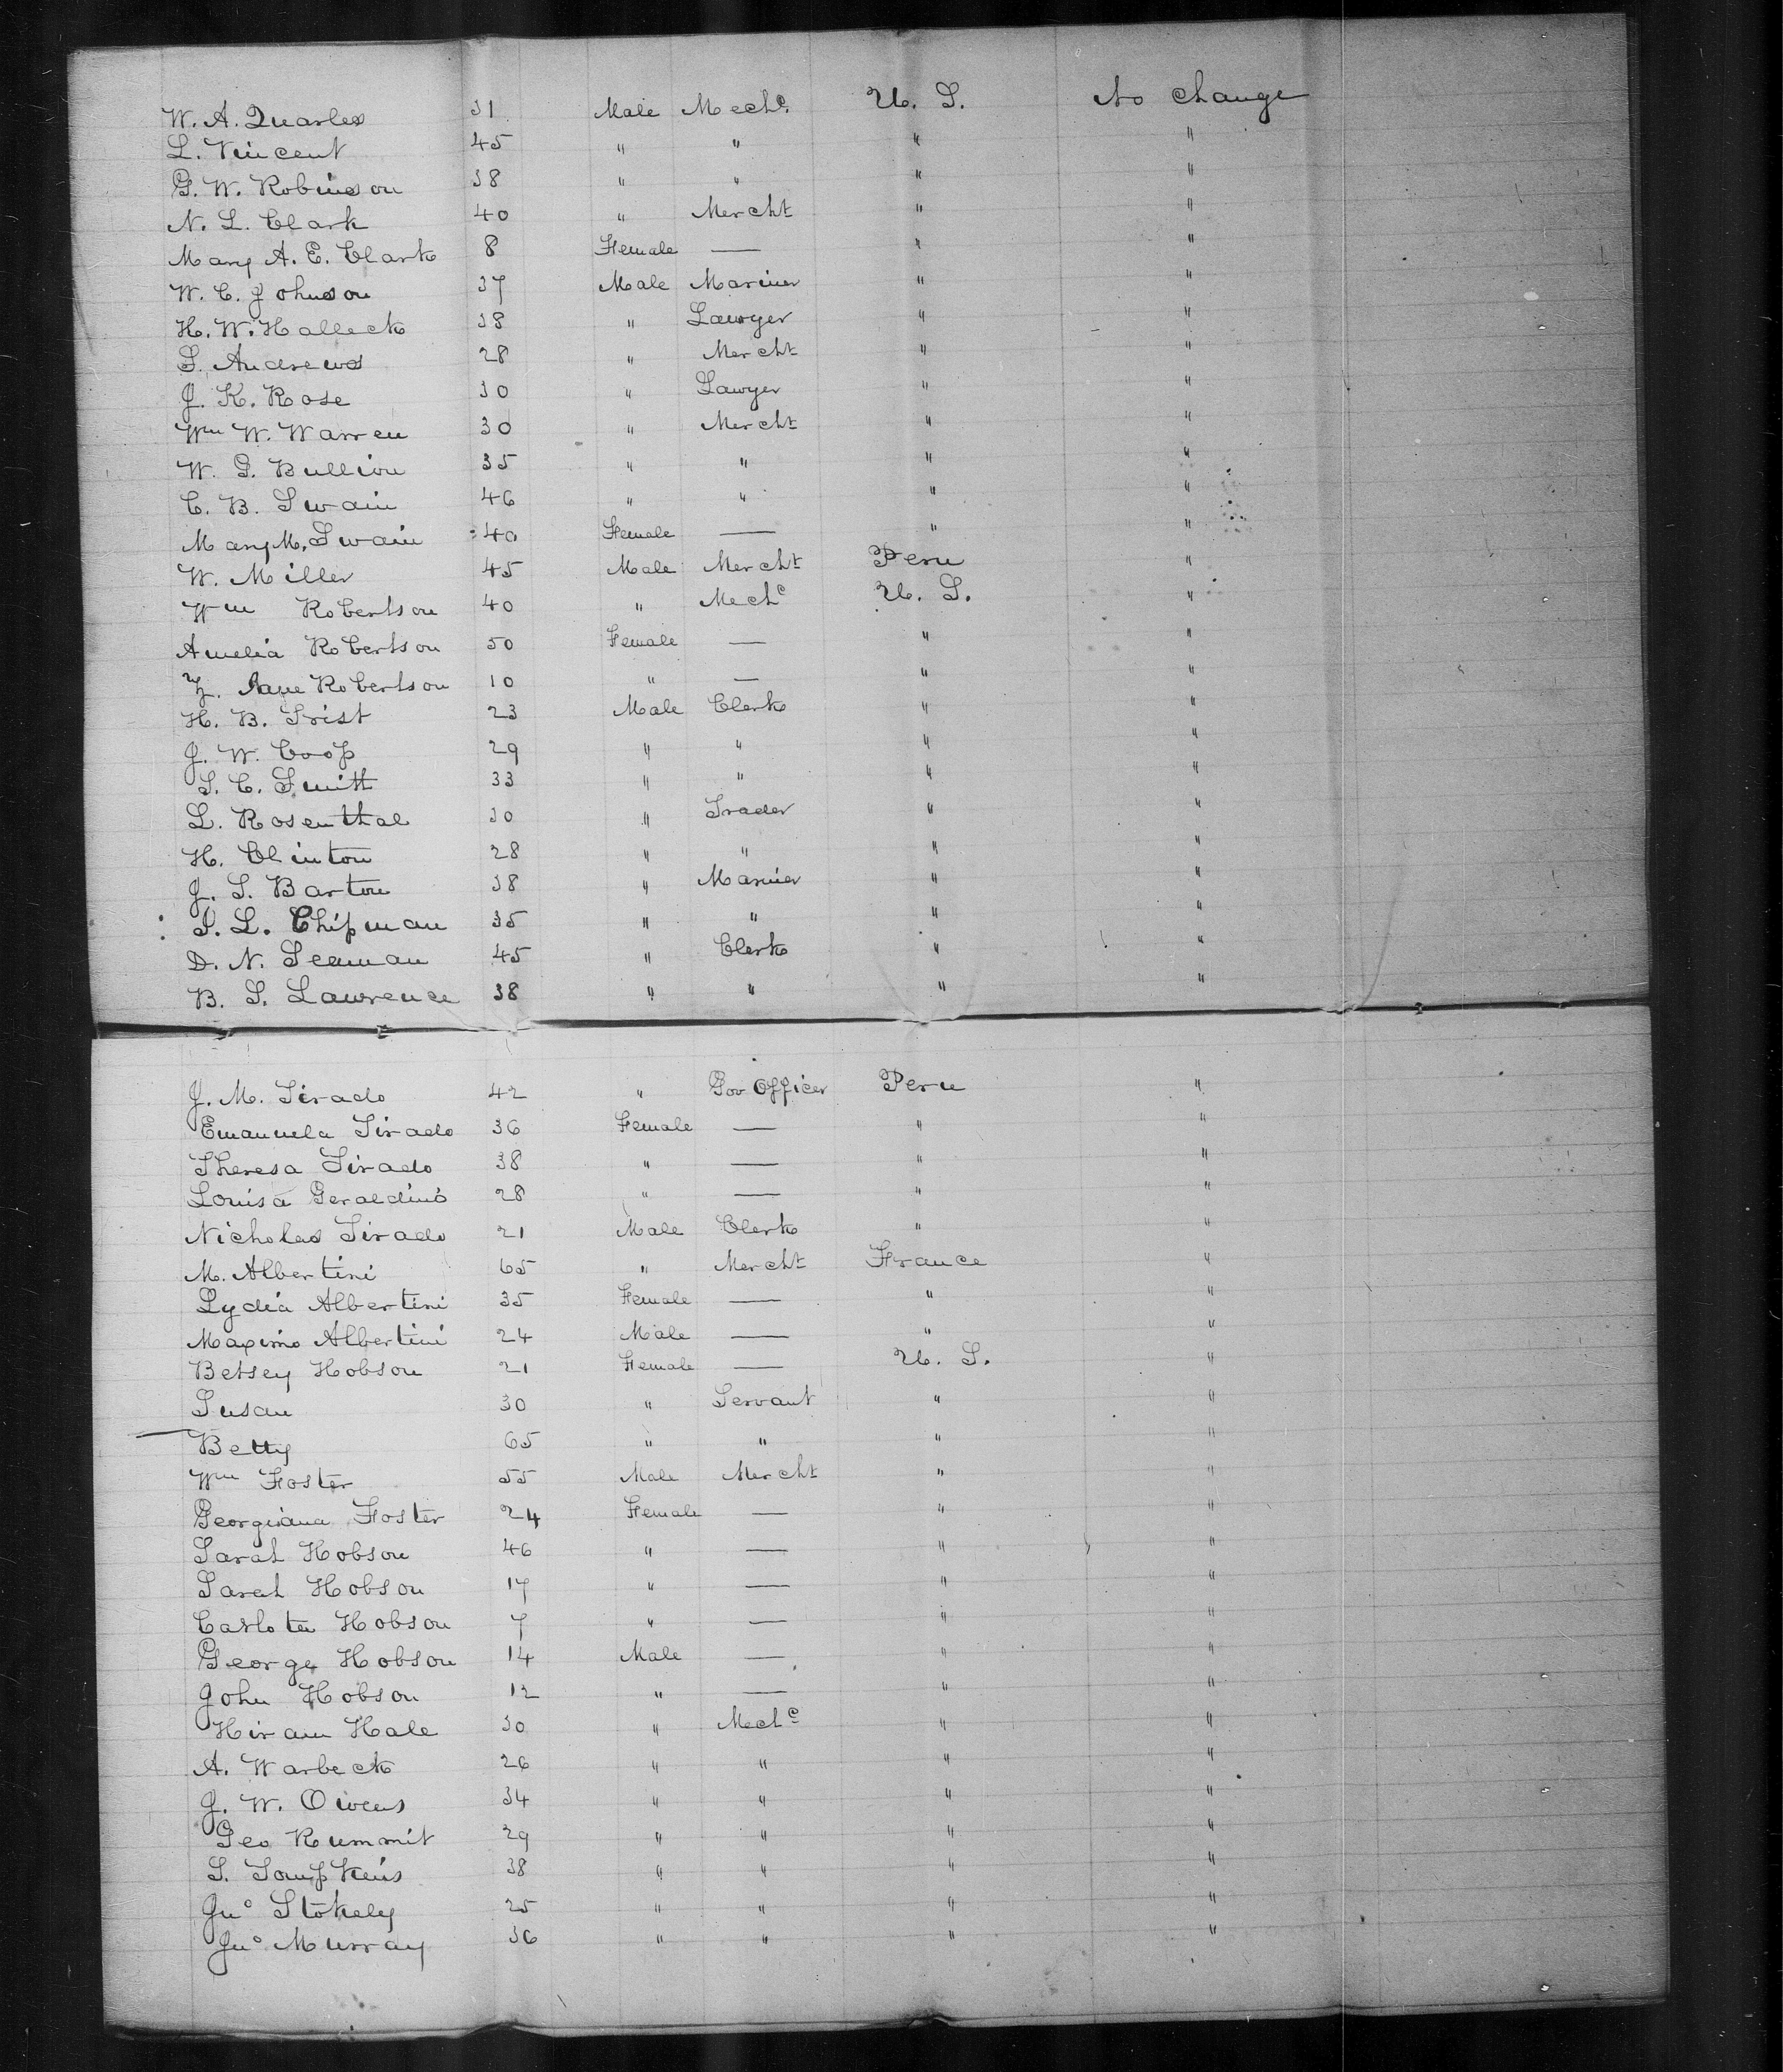 W. A. Quarles 31 Male Mechc. U. S. No change
L. Vincent 45 " " " "
G. W. Robinson 38 " " " "
N. L. Clark 40 " Mercht " "
Mary A. E. Clark 8 Female — " "
W. C. Johnson 37 Male Mariner " "
H. W. Halleck 38 " Lawyer " "
S. Andrews 28 " Mercht " "
J. K. Rose 30 " Lawyer " "
Wm W. Warren 30 " Mercht " "
W. S. Bullion 35 " " " "
C. B. Swain 46 " " " "
Mary M. Swain 40 Female — " "
W. Miller 45 Male Mercht Peru "
Wm Robertson 40 " Mechc U. S. "
Amelia Robertson 50 Female — " "
Z. Robertson 10 " — " "
H. B. Trist 23 Male Clerk " "
J. W. Coop 29 " " " "
S. C. Smith 33 " " " "
L. Rosenthal 30 " Trader " "
H. Clinton 28 " " " "
J. S. Barton 38 " Mariner " "
S. L. Chipman 35 " " " "
D. N. Seaman 45 " Clerk " "
B. S. Lawrence 38 " " " "
J. M. Tirado 42 " Gov Officer Peru "
Emanuela Tirado 36 Female — " "
Theresa Tirado 38 " — " "
Louisa Geraldino 28 " — " "
Nicholas Tirado 21 Male Clerk " "
M. Albertini 65 " Mercht France "
Lydia Albertini 35 Female — " "
Maximo Albertini 24 Male — " "
Betsey Hobson 21 Female — U. S. "
Susan 30 " Servant " "
Betty 65 " " " "
Wm Foster 55 Male Mercht " "
Georgiana Foster 24 Female — " "
Sarah Hobson 46 " — " "
Sarah Hobson 17 " — " "
Carlota Hobson 7 " — " "
George Hobson 14 Male — " "
John Hobson 12 " — " "
Hiram Hale 30 " Mechc " "
A. Warbeck 26 " " " "
J. W. Owens 34 " " " "
Geo Rummit 29 " " " "
S. Tompkins 38 " " " "
Jno Stokely 25 " " " "
Jno Murray 36 " " " "